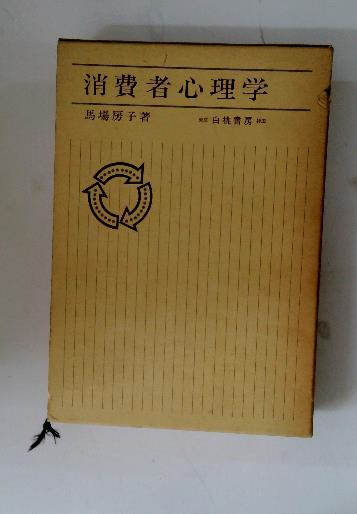 消費者心理学
馬場房子著 東京 白桃書房 神田